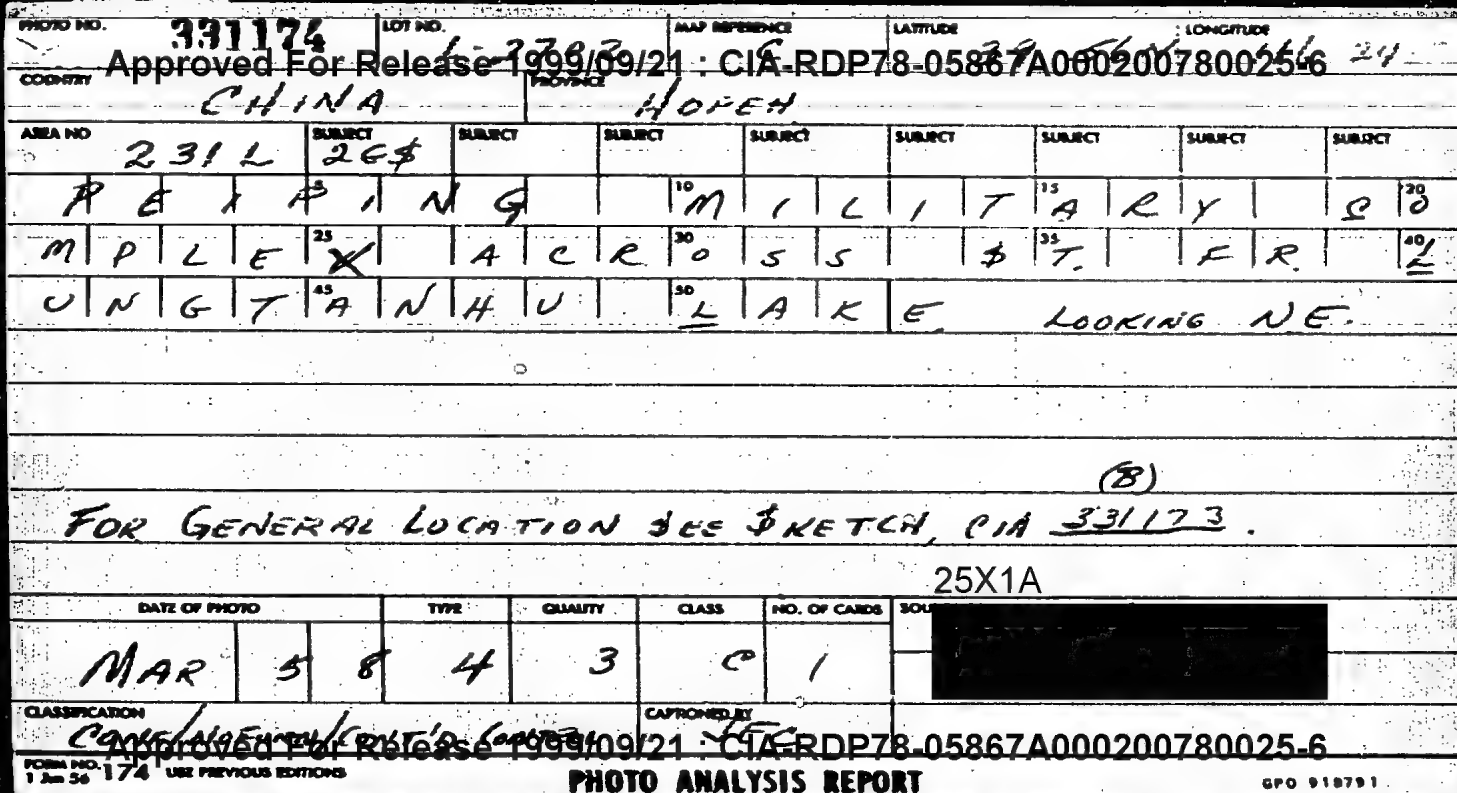 PHOTO NO. 331174 LOT NO. MAP REFERENCE LATITUDE LONGITUDE
Approved For Release 1999/09/21 : CIA-RDP78-05867A000200780025-6 24
COUNTRY CHINA PROVINCE HOPEH
AREA NO 231L SUBJECT 2G$ SUBJECT SUBJECT SUBJECT SUBJECT SUBJECT SUBJECT SUBJECT
PEIPING MILITARY CO
5 10 15 20
MPLEX ACROSS $T. FR. L
25 30 35 40
UNGTANHU LAKE. LOOKING NE.
45 50
(B)
FOR GENERAL LOCATION $EE $KETCH, CIA 331173.
25X1A
DATE OF PHOTO TYPE QUALITY CLASS NO. OF CARDS
MAR 58 4 3 C 1
CLASSIFICATION CAPTIONED BY
Approved For Release 1999/09/21 : CIA-RDP78-05867A000200780025-6
FORM NO. 174 USE PREVIOUS EDITIONS PHOTO ANALYSIS REPORT GPO 918791
1 Jun 56